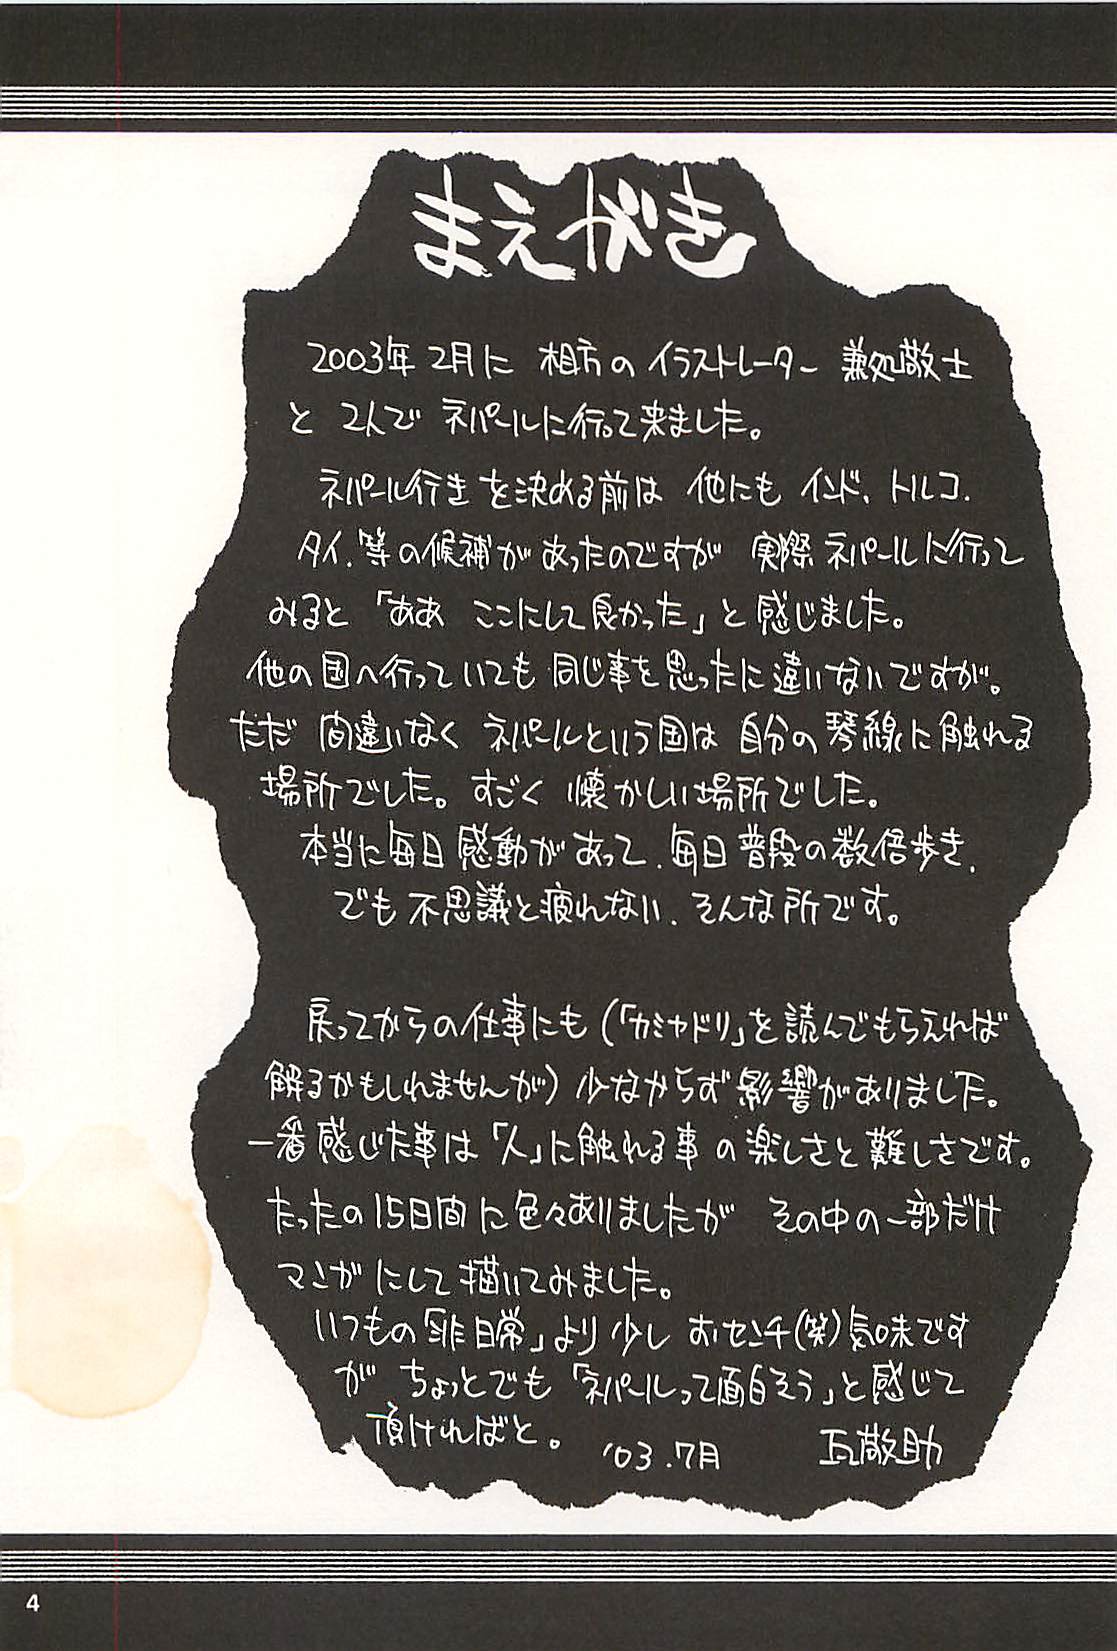 まえがき
2003年2月に 相方のイラストレーター 兼処敬士
と 2人で ネパールに行って来ました。
ネパール行きを決める前は 他にも インド、トルコ、
タイ、等の候補があったのですが 実際ネパールに行って
みると「ああ ここにして良かった」と感じました。
他の国へ行っていても同じ事を思ったに違いないですが。
ただ 間違いなく ネパールという国は 自分の琴線に触れる
場所でした。すごく 懐かしい場所でした。
本当に毎日感動があって、毎日普段の数倍歩き、
でも不思議と疲れない、そんな所です。
戻ってからの仕事にも(「カミヤドリ」を読んでもらえれば
解るかもしれませんが)少なからず影響がありました。
一番感じた事は「人」に触れる事の楽しさと難しさです。
たったの15日間に色々ありましたが その中の一部だけ
マンガにして描いてみました。
いつもの「非日常」より少し おセンチ(笑)気味です
が ちょっとでも「ネパールって面白そう」と感じて
頂ければと。
'03.7月 瓦敬助
4